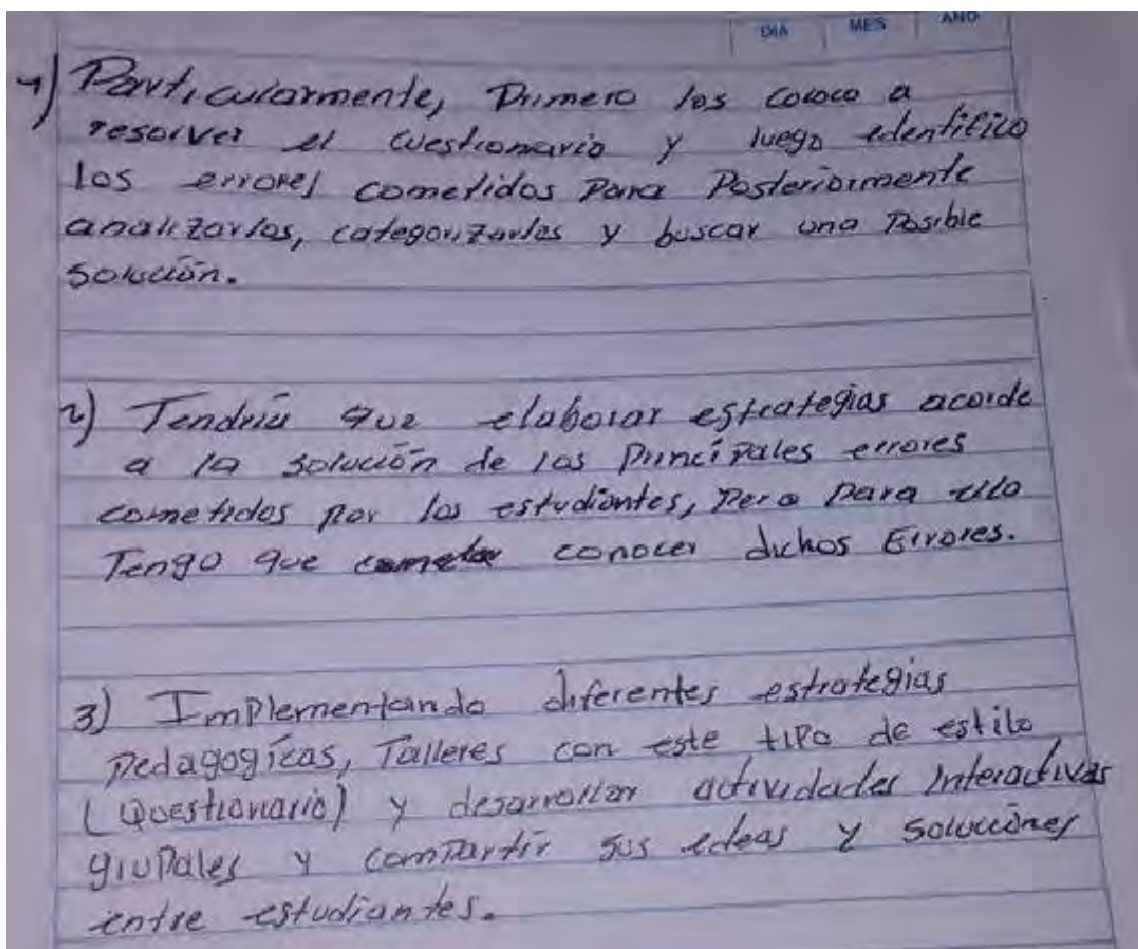 DIA MES AÑO
1) Particularmente, Primero los coloco a
resolver el cuestionario y luego edentifico
los errores cometidos Para Posteriormente
analizarlos, categorizarlos y buscar una Posible
Solución.
2) Tendría que elaborar estrategias acorde
a la solución de los Principales errores
cometidos por los estudiantes, Pero Para ello
Tengo que conocer dichos Errores.
3) Implementando diferentes estrategias
Pedagogícas, Talleres con este tipo de estilo
(Questionario) y desarrollar actividades Interactivas
grupales y compartir sus edeas y soluciones
entre estudiantes.